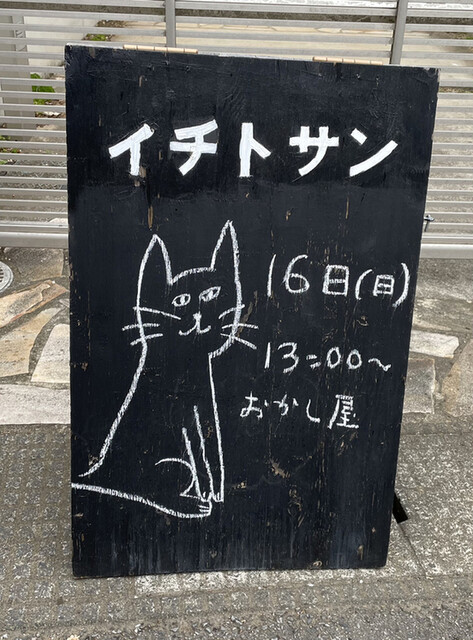 イチトサン
16日(日)
13:00〜
おかし屋